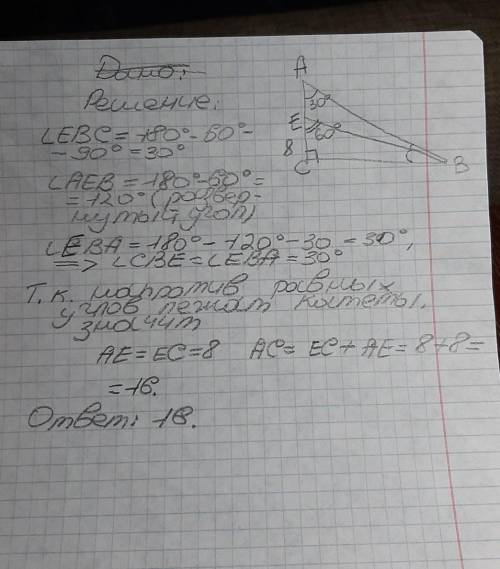 Дано:
Решение:
∠EBC = 180° - 60° -
- 90° = 30°
∠AEB = 180° - 60° =
= 120° (развер-
нутый угол)
∠EBA = 180° - 120° - 30 = 30°,
=> ∠CBE = ∠EBA = 30°
Т.к. напротив равных
углов лежат катеты,
значит
AE = EC = 8 AC = EC + AE = 8 + 8 =
= 16.
Ответ: 16.
A
30°
E
60°
8
C
B